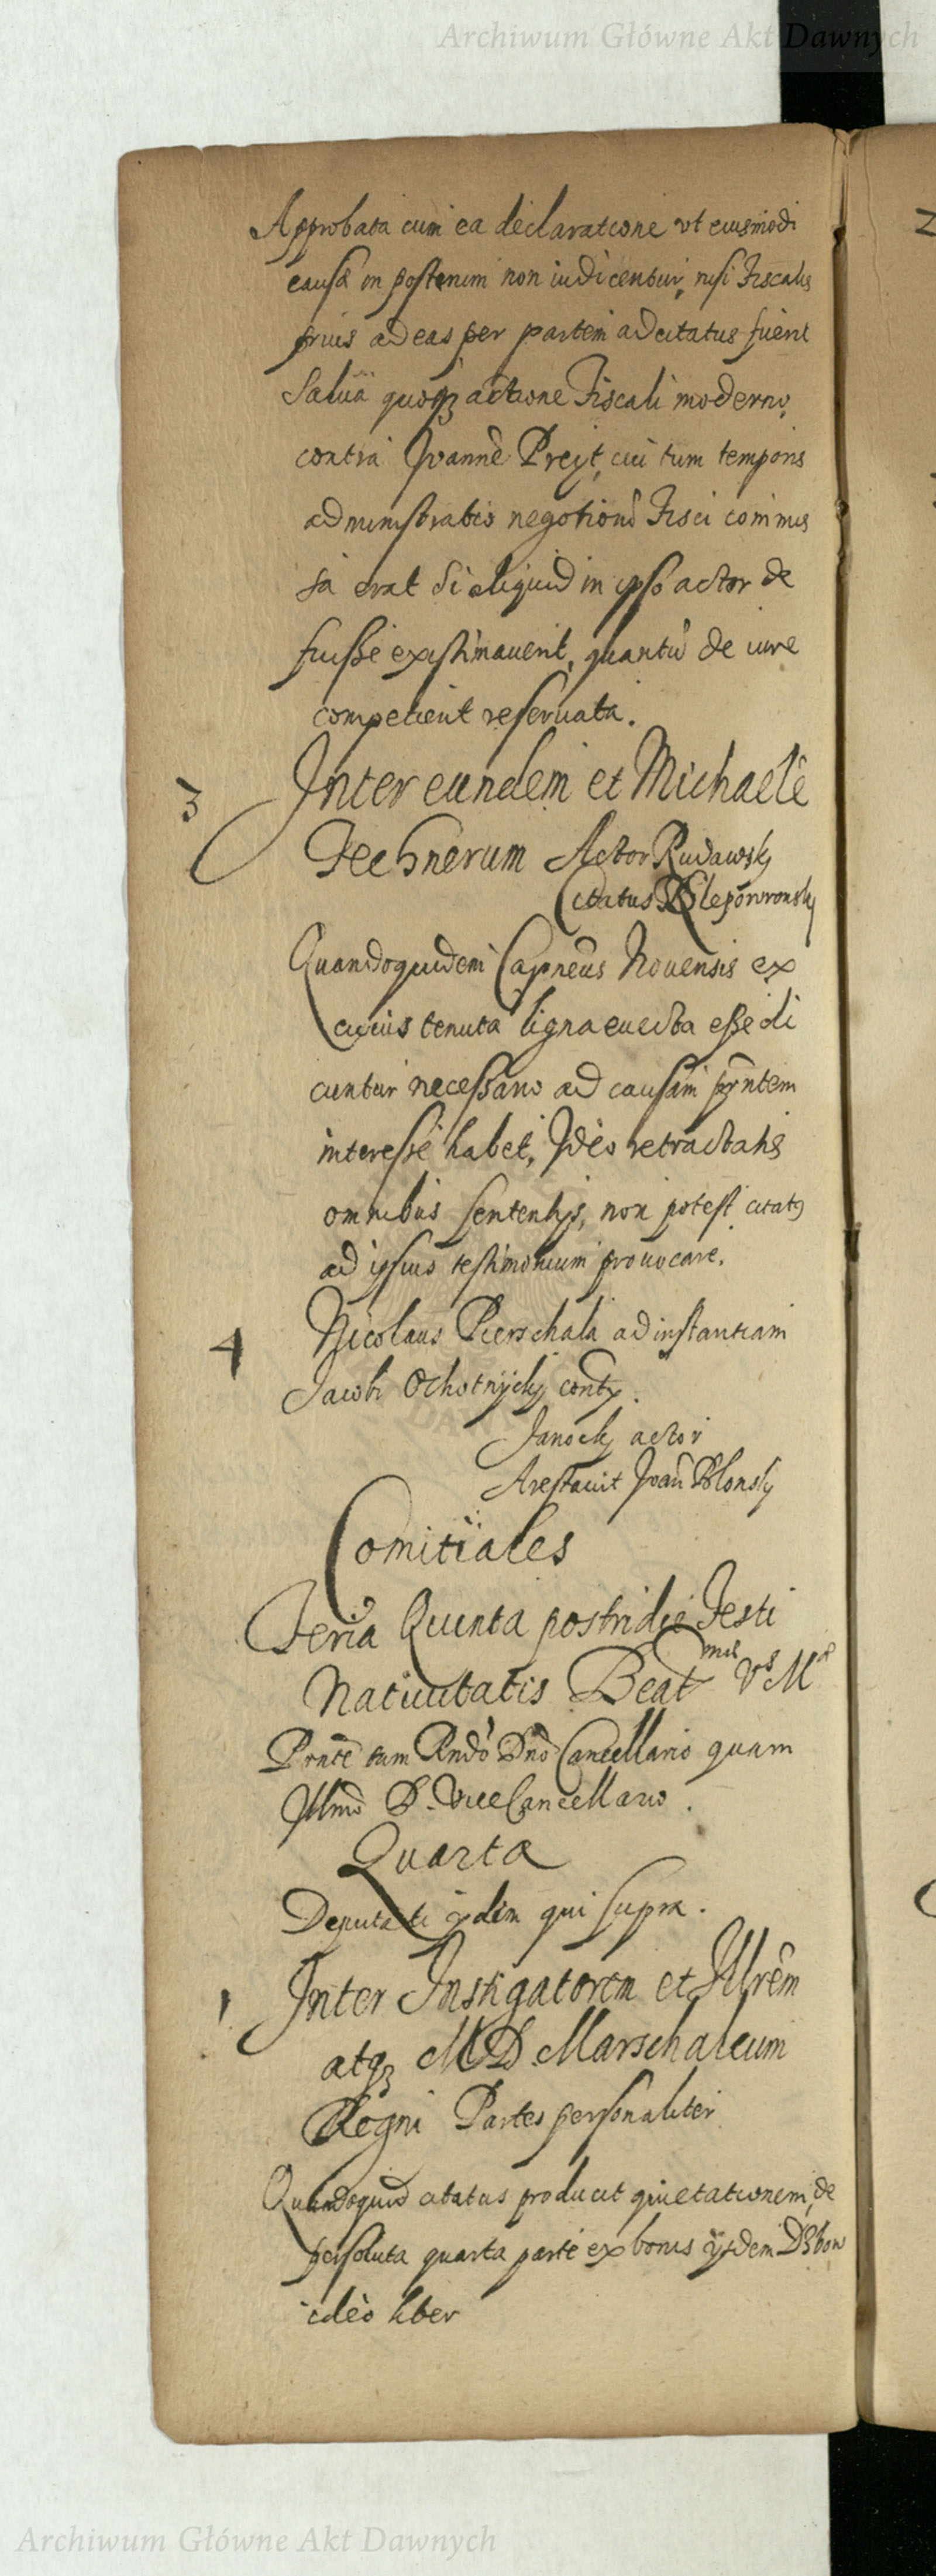 Archiwum Główne Akt Dawnych
Approbata cum ea declaratione vt eiusmodi
causæ in posterum non iudicentur, nisi Fiscalis
prius ad eas per partem adcitatus fuerit
Salua quoqꝫ actione Fiscali moderno,
contra Joannē Preyt, cui tum temporis
administratio negotiorū Fisci commis
sa erat si aliquid in ipso actor de
fuisse existimauerit, quantū de iure
competierit reseruata.
3 Inter eundem et Michaelē
Fechnerum Actor Rudawsky
Citatus Kleporowronsky
Quandoquidem Capneus Nouensis ex
cuius tenuta ligna euecta esse di
cuntur necessario ad causam prntem
interesse habet, Ideo retractatis
omnibus sententijs, non potest citatꝰ
ad ipsius testimonium prouocare.
4 Nicolaus Pierschala ad instantiam
Jacobi Ochotnÿcky contx.
Janocky actor
Arestauit Joan Plonsky
Comitiales
Feria Quinta postridie Festi
Natiuitatis Beat mæ Vs Mæ
Prnte tam Rndo Dno Cancellario quam
Illmo D. ViceCancellario.
Quarta
Deputati ijdem qui supra.
1 Inter Instigatorem et Illrem
atqꝫ MD Marschalcum
Regni Partes personaliter
Quandoquid citatus producit quietationem, de
persoluta quarta parte ex bonis ijsdem
ideo liber
Archiwum Główne Akt Dawnych